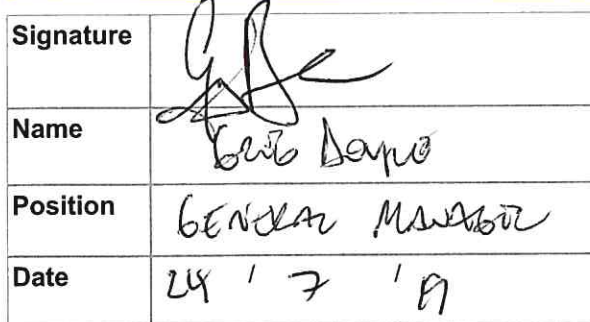 Signature
Name
Position GENERAL MANAGER
Date 24 / 7 / 19